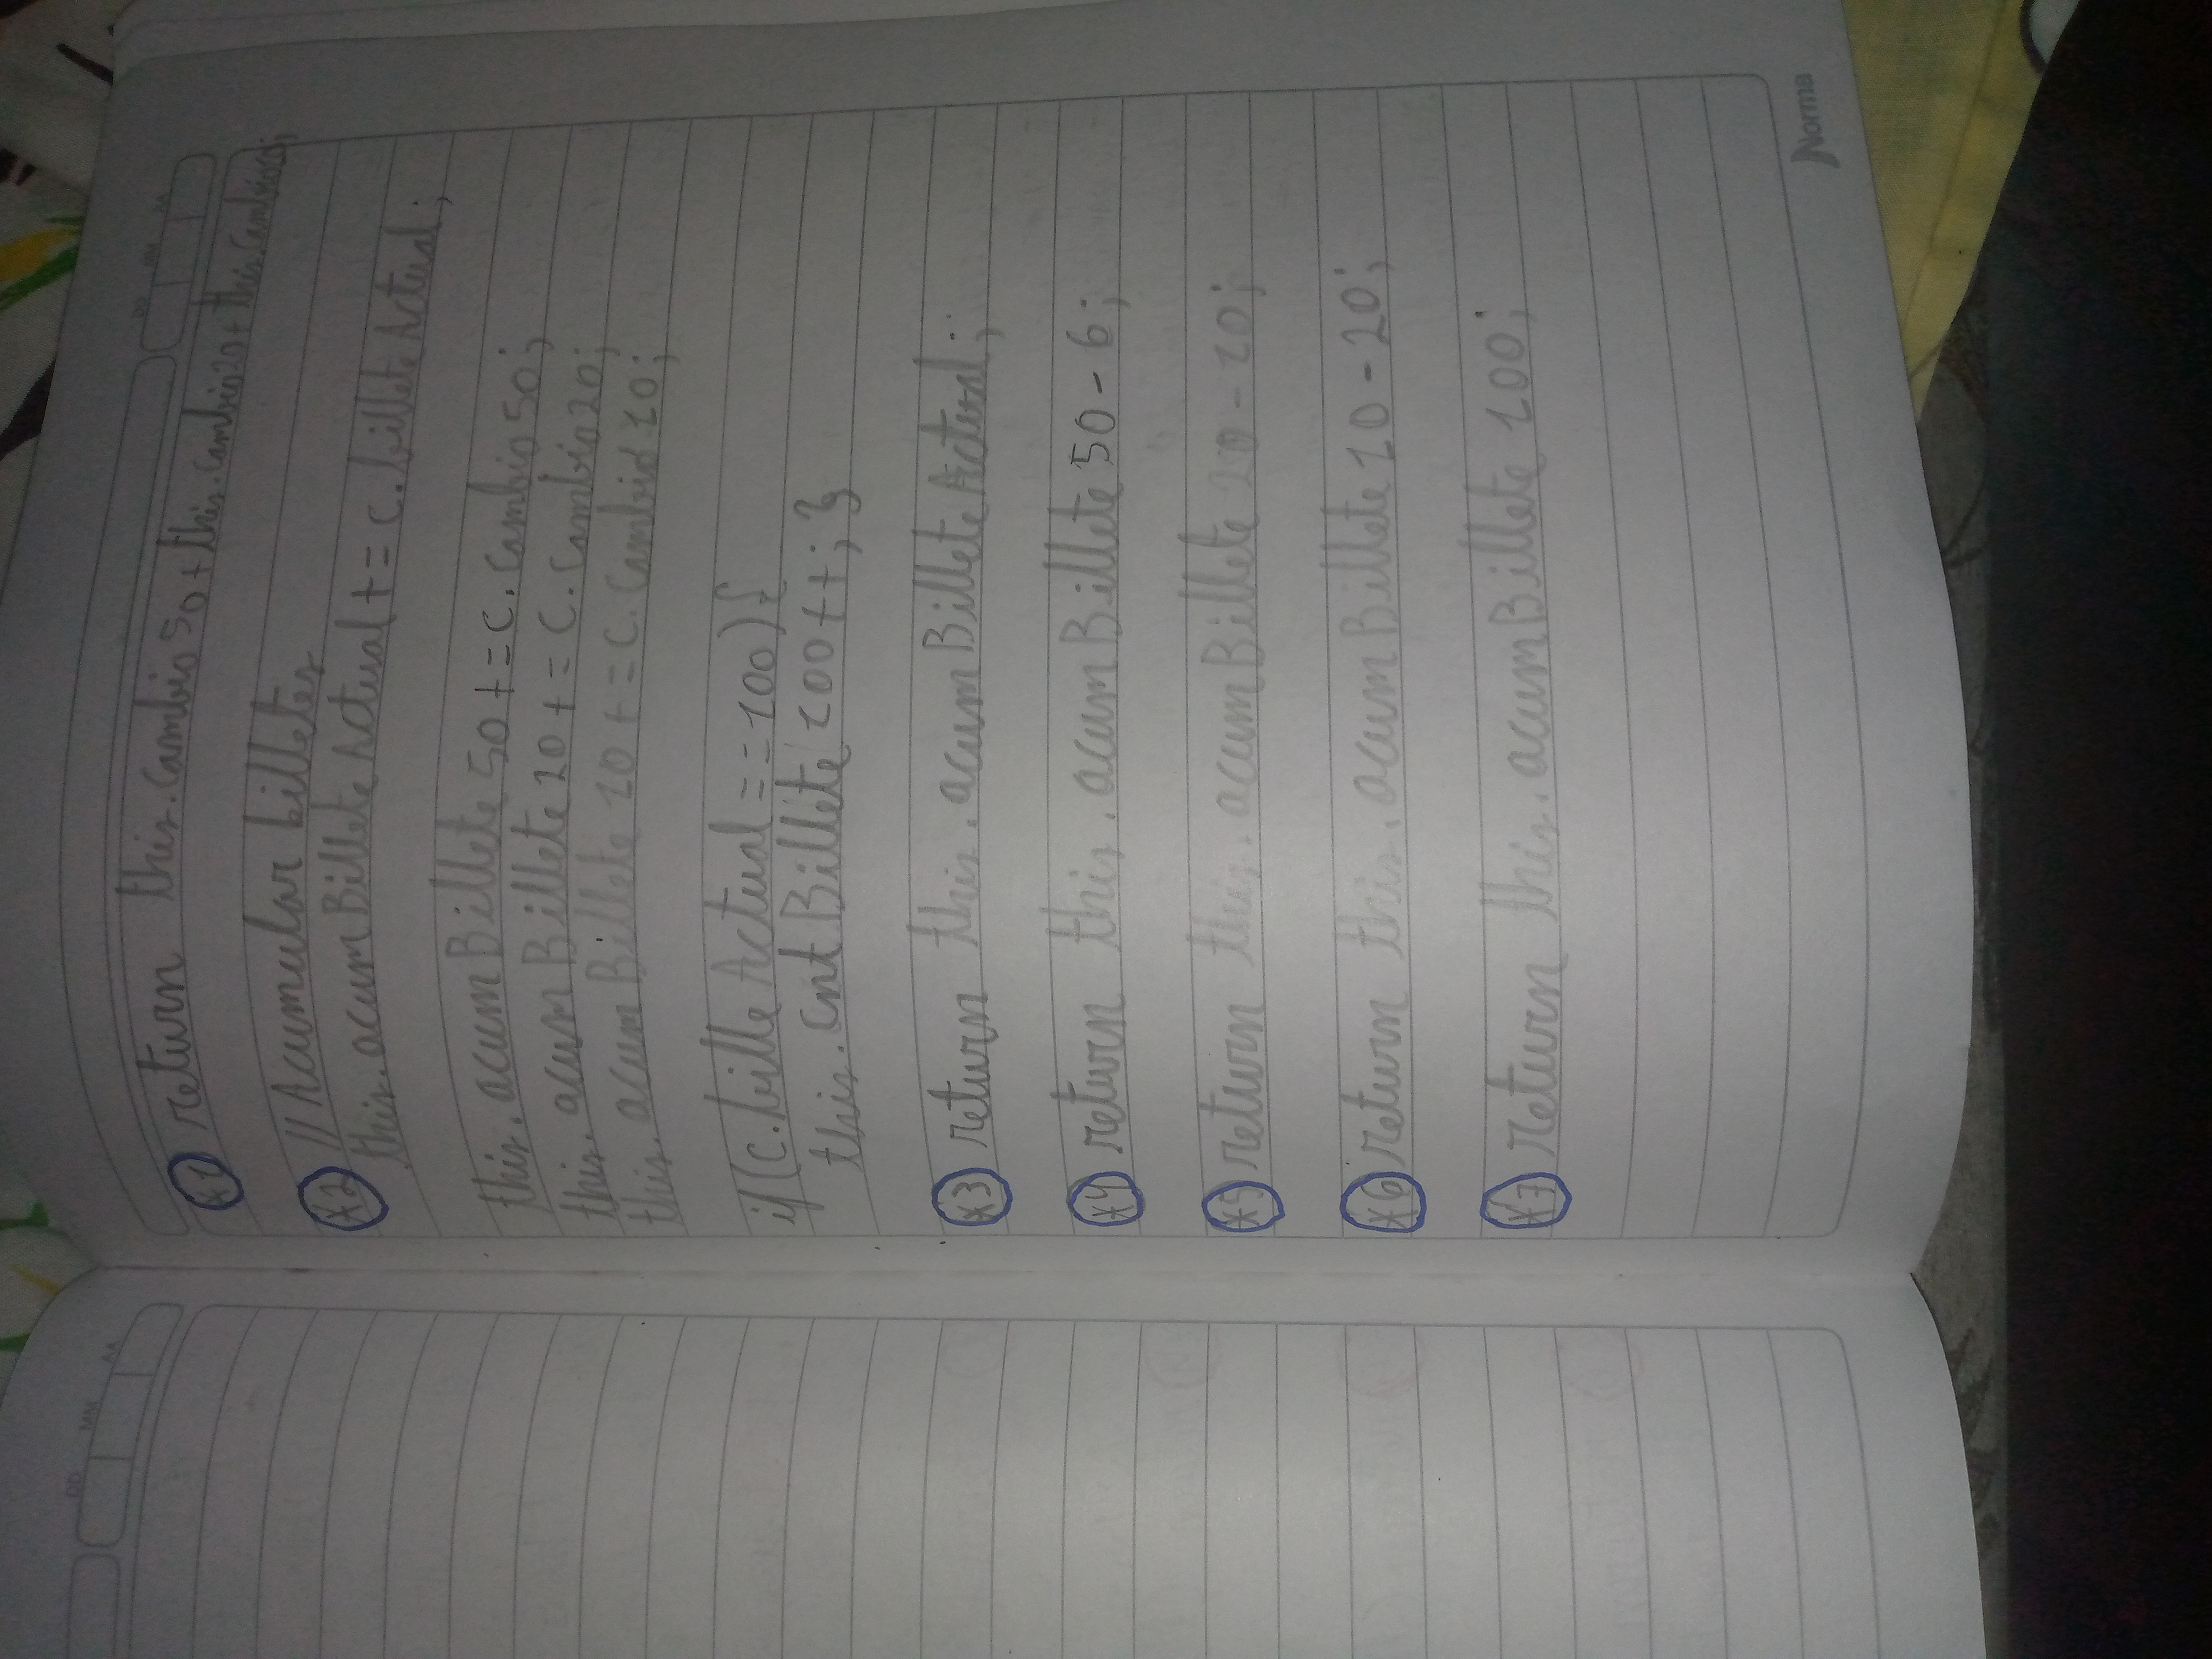 DD MM AA
*1 return this.cambio50+this.cambio20+this.cambio10;
*2 //Acumular billetes
this.acumBilleteActual+=c.billeteActual;
this.acumBillete50+=c.cambio50;
this.acumBillete20+=c.cambio20;
this.acumBillete10+=c.cambio10;
if(c.billeActual==100){
this.cntBillete100++;}
*3 return this.acumBilleteActual;
*4 return this.acumBillete50-6;
*5 return this.acumBillete20-10;
*6 return this.acumBillete10-20;
*7 return this.acumBillete100;
Norma
DD MM AA